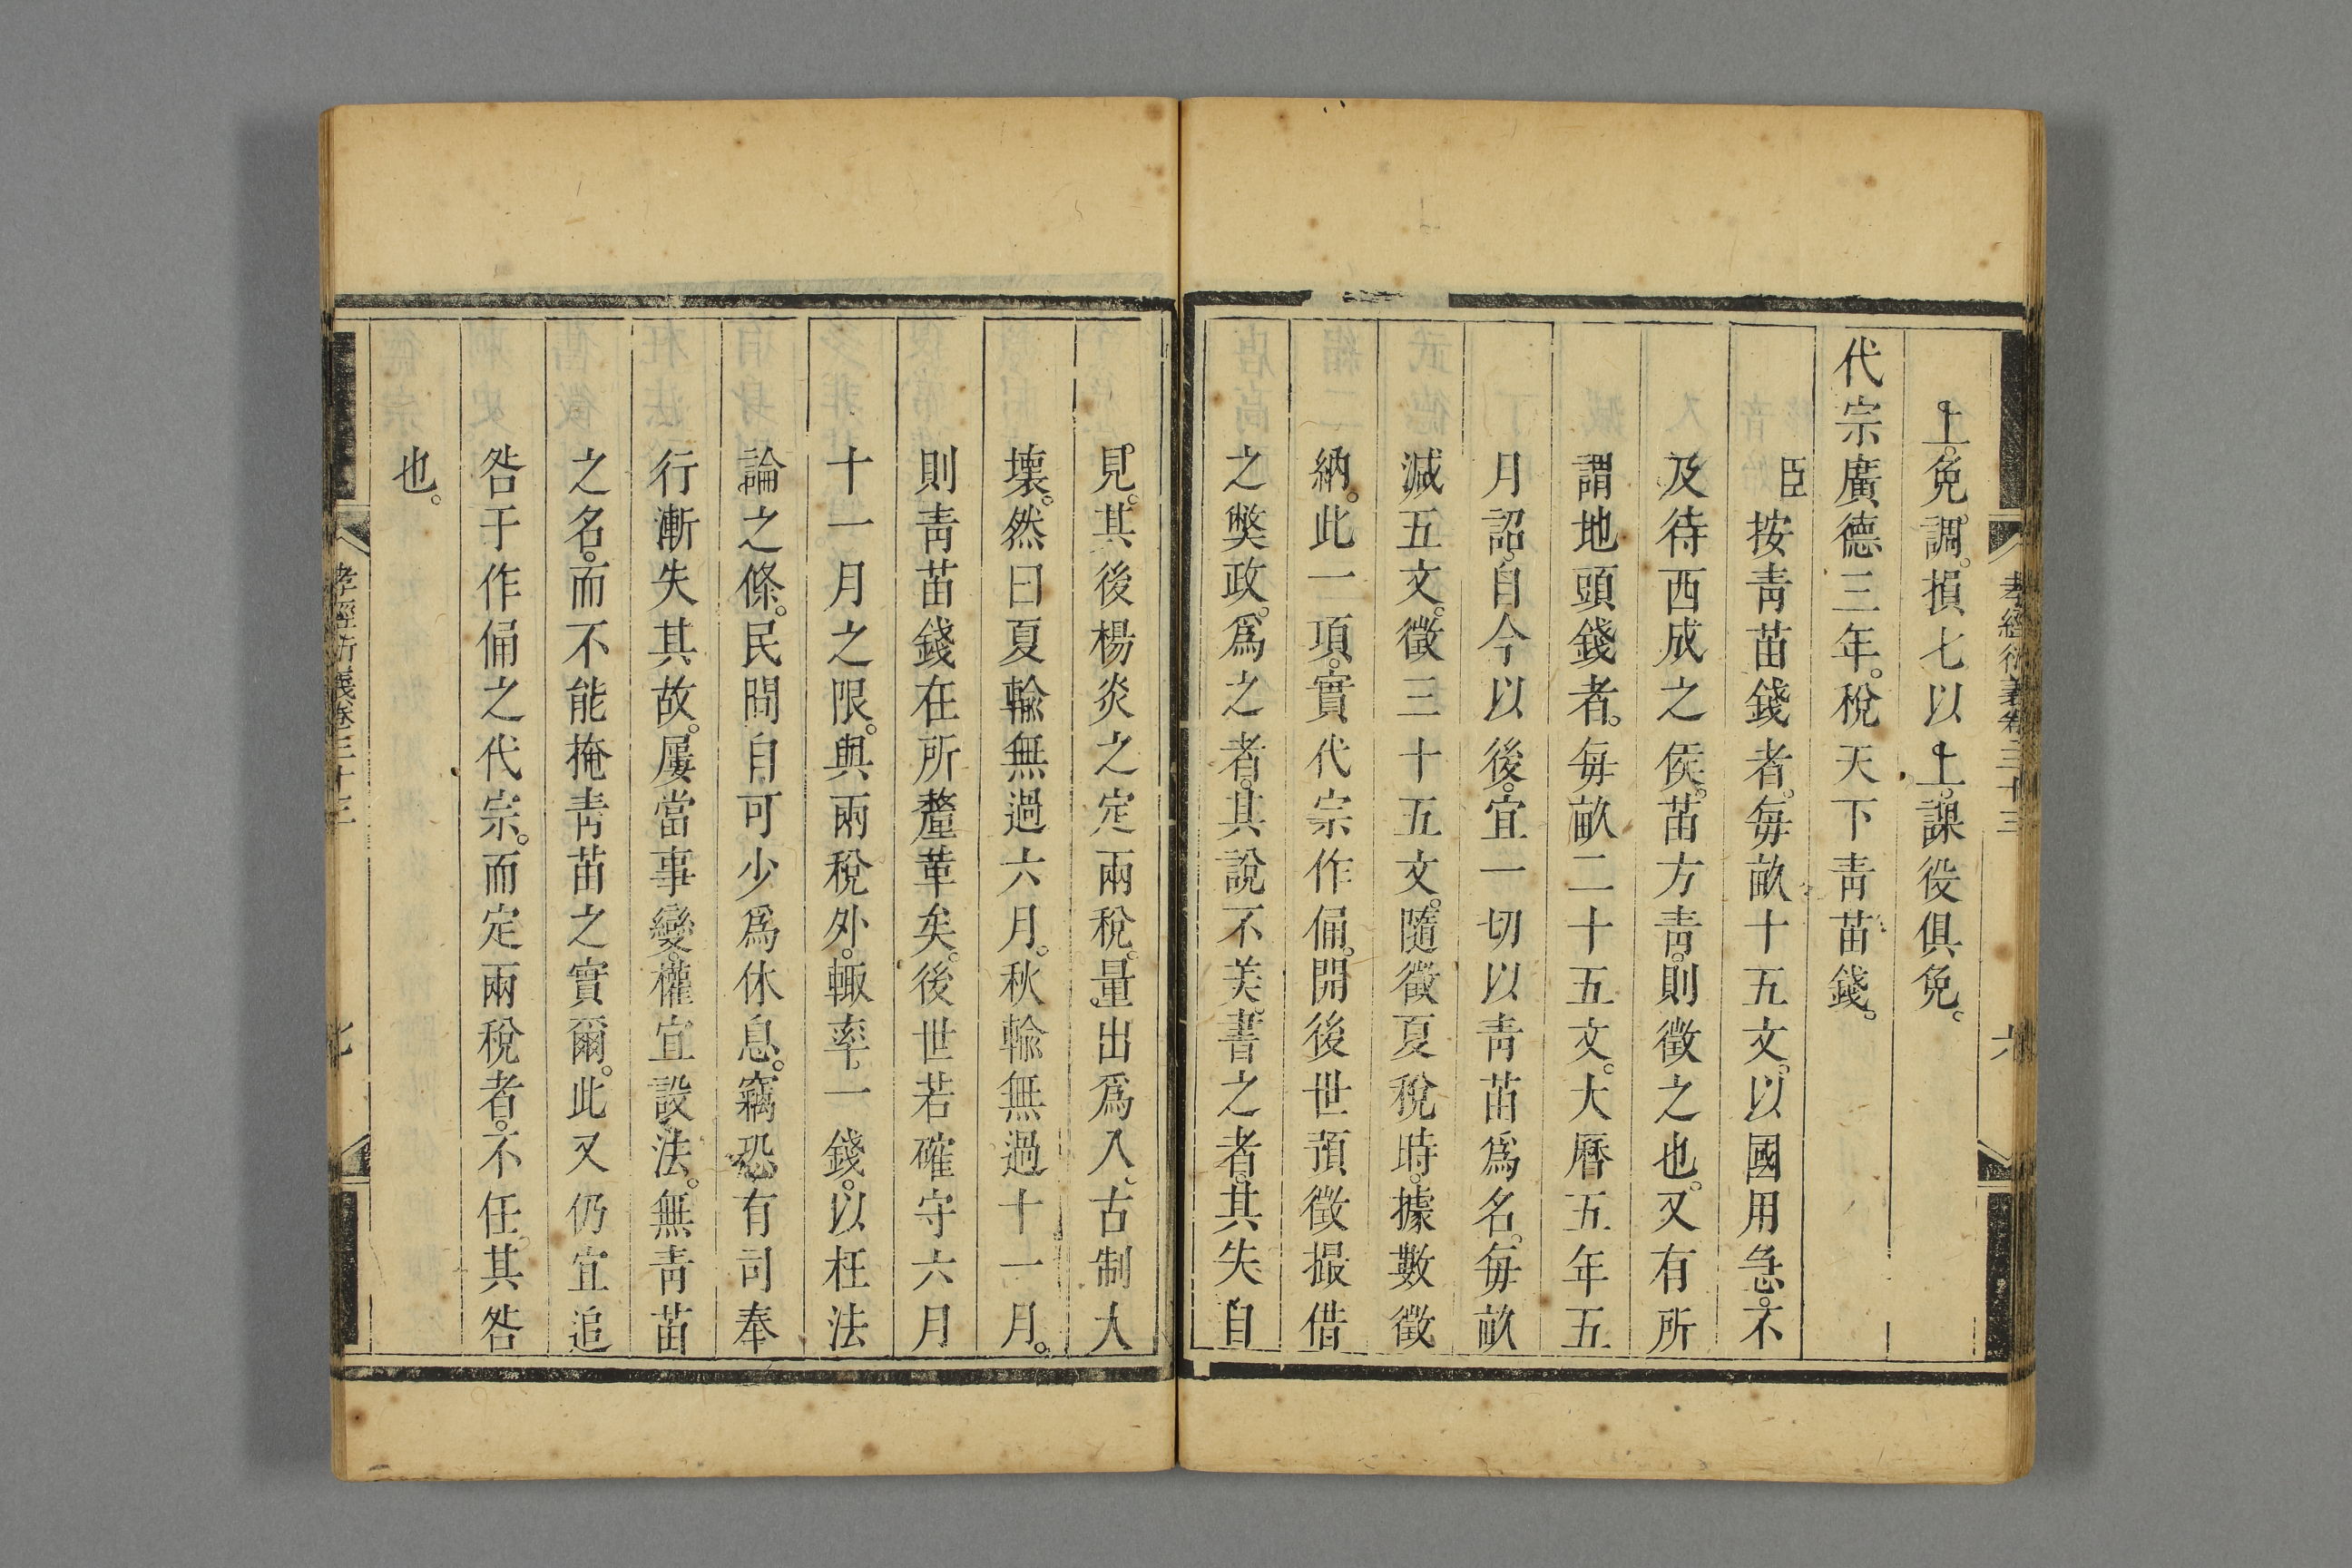 孝經衍義卷三十三
六
上。免調。損七以上。課役俱免。
代宗廣德三年。稅天下靑苗錢。
臣按靑苗錢者。每畝十五文。以國用急。不
及待西成之候。苗方靑。則徵之也。又有所
謂地頭錢者。每畝二十五文。大曆五年五
月詔。自今以後。宜一切以靑苗爲名。每畝
減五文。徵三十五文。隨徵夏稅時。據數徵
納。此一項。實代宗作俑。開後世預徵撮借
之獘政。爲之者。其說不美。書之者。其失自
見。其後楊炎之定兩稅。量出爲入。古制大
壞。然曰夏輸無過六月。秋輸無過十一月。
則靑苗錢在所釐革矣。後世若確守六月
十一月之限。與兩稅外。輒率一錢。以枉法
論之條。民間自可少爲休息。竊恐有司奉
行漸失其故。屢當事變。權宜設法。無靑苗
之名。而不能掩靑苗之實爾。此又仍宜追
咎于作俑之代宗。而定兩稅者。不任其咎
也。
孝經衍義卷三十三
七